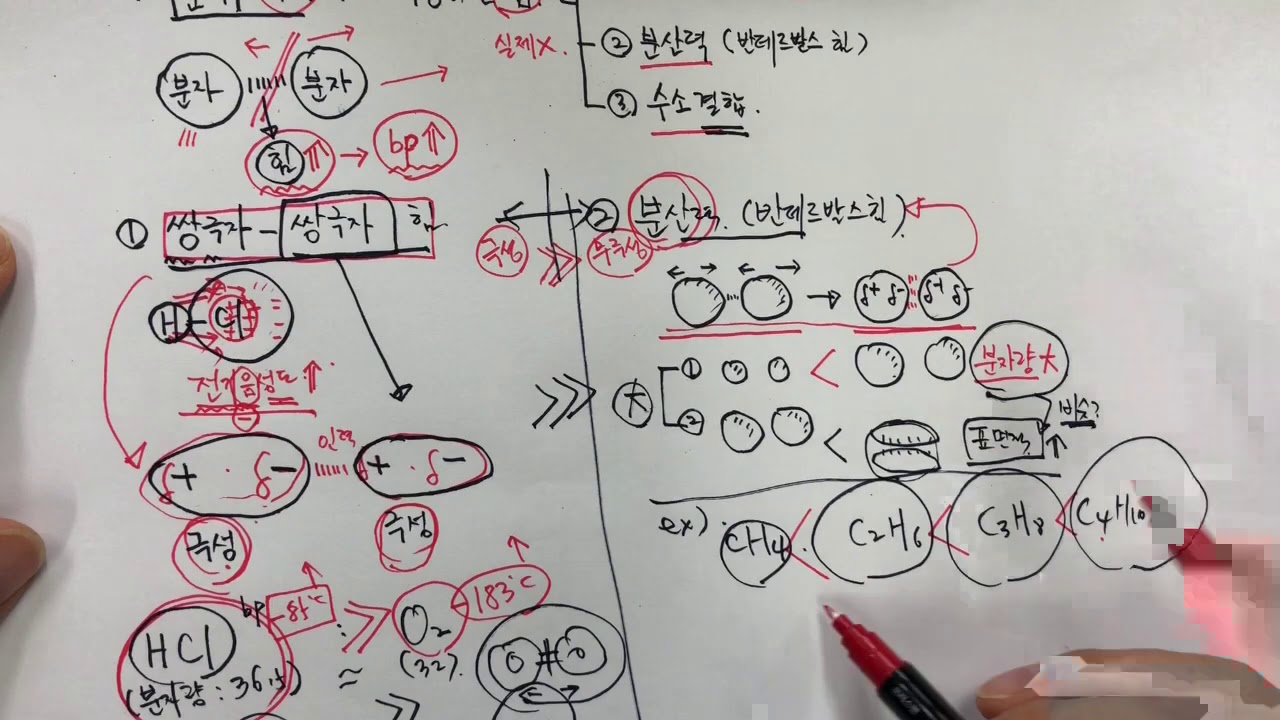 실제X.
② 분산력 (반데르발스 힘)
③ 수소결합.
분자 분자
힘⇑ → bp⇑
① 쌍극자-쌍극자 힘
H-Cl
전기음성도↑
−
δ+ δ− 인력 δ+ δ−
극성 극성
HCl bp -85℃ ≫ O2 -183℃
(분자량: 36.5) ≈ (32).
≫
② 분산력. (반데르발스 힘)
극성 ≫ 무극성
→ δ+ δ− δ+ δ−
大 ① < 분자량 大
② < 표면적 ↑
비슷?
ex) CH4 < C2H6 < C3H8 < C4H10